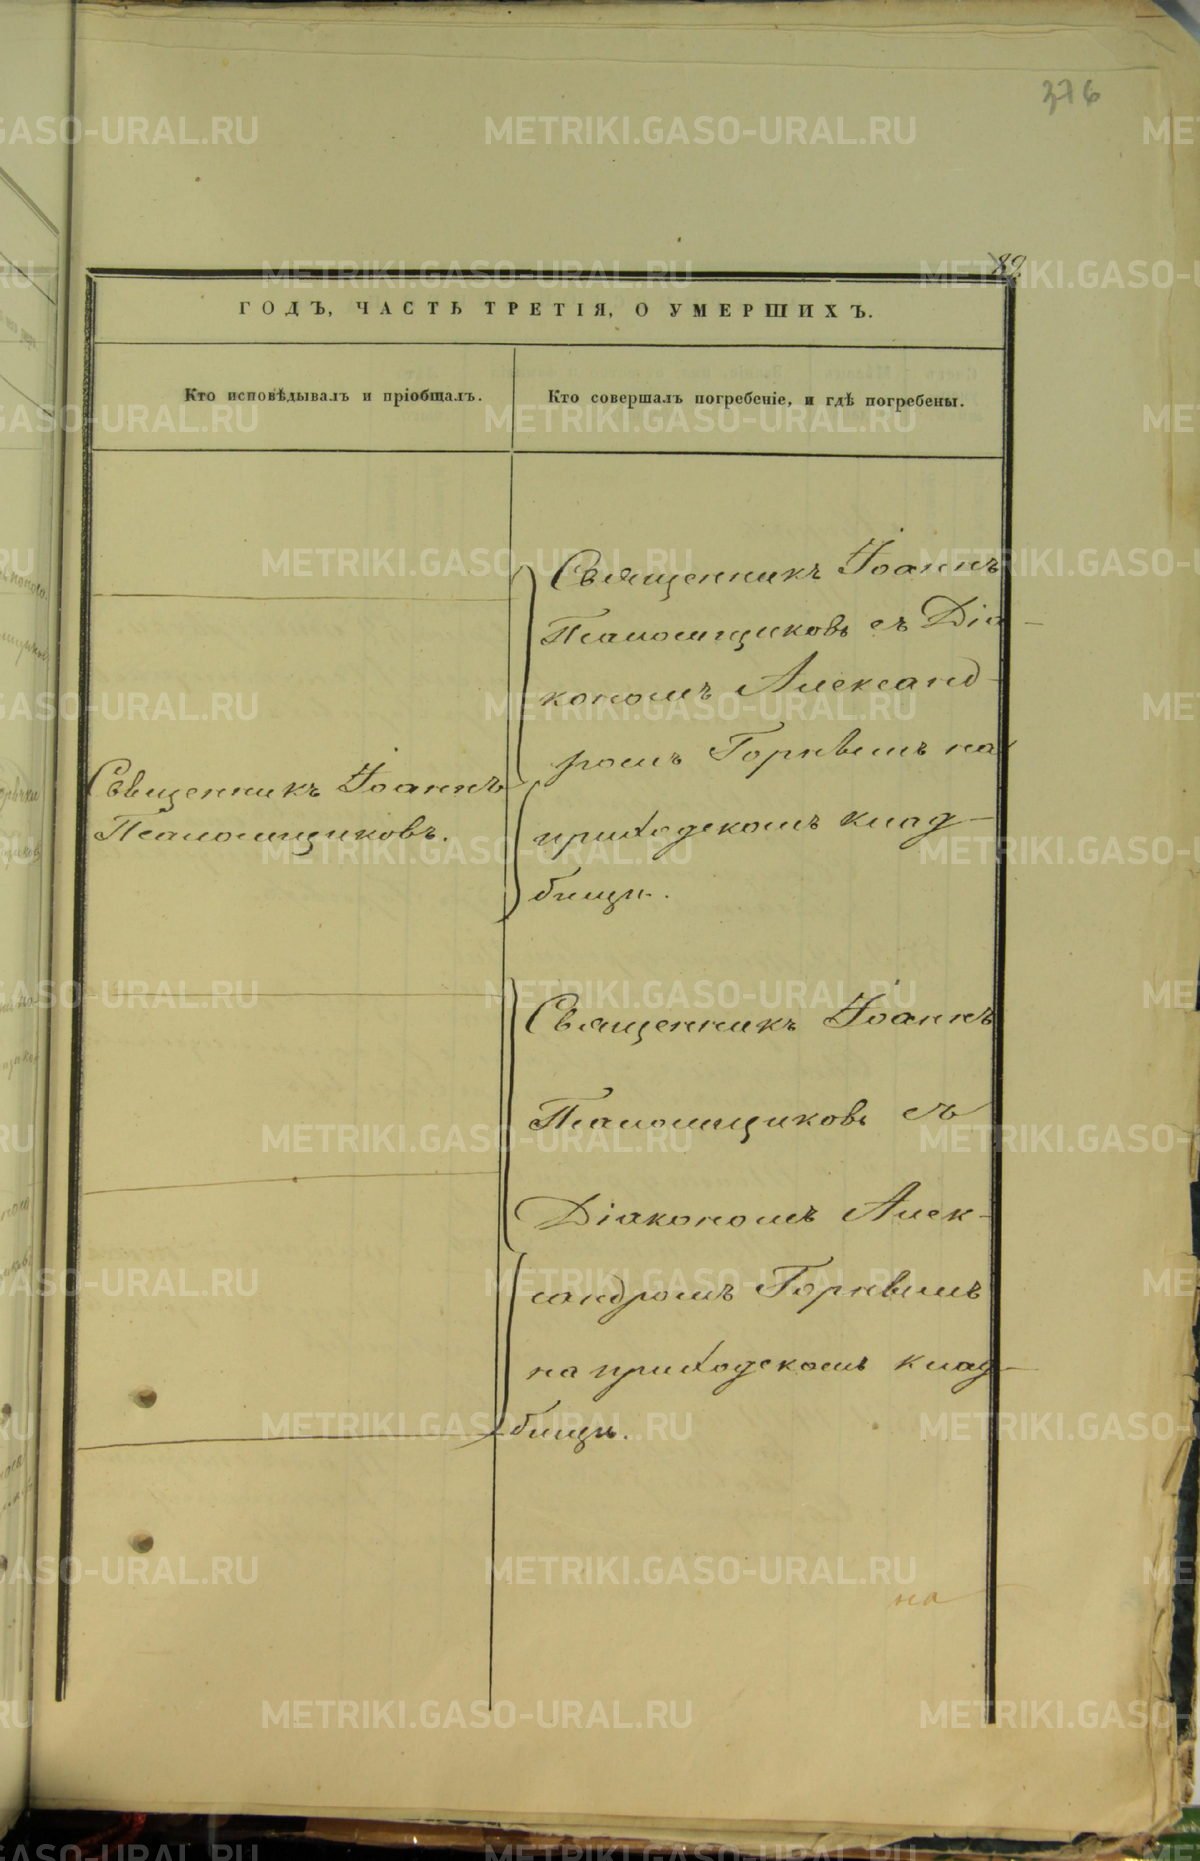 376
89
ГОДЪ, ЧАСТЬ ТРЕТІЯ, О УМЕРШИХЪ.
Кто исповѣдывалъ и пріобщалъ.
Кто совершалъ погребеніе, и гдѣ погребены.
Священникъ Іоаннъ
Псаломщиковъ.
Священникъ Іоаннъ
Псаломщиковъ съ Діа-
кономъ Александ-
ромъ Горнвымъ на
приходскомъ клад-
бищѣ.
Священникъ Іоаннъ
Псаломщиковъ съ
Діакономъ Алек-
сандромъ Горнвымъ
на приходскомъ клад-
бищѣ.
на
METRIKI.GASO-URAL.RU